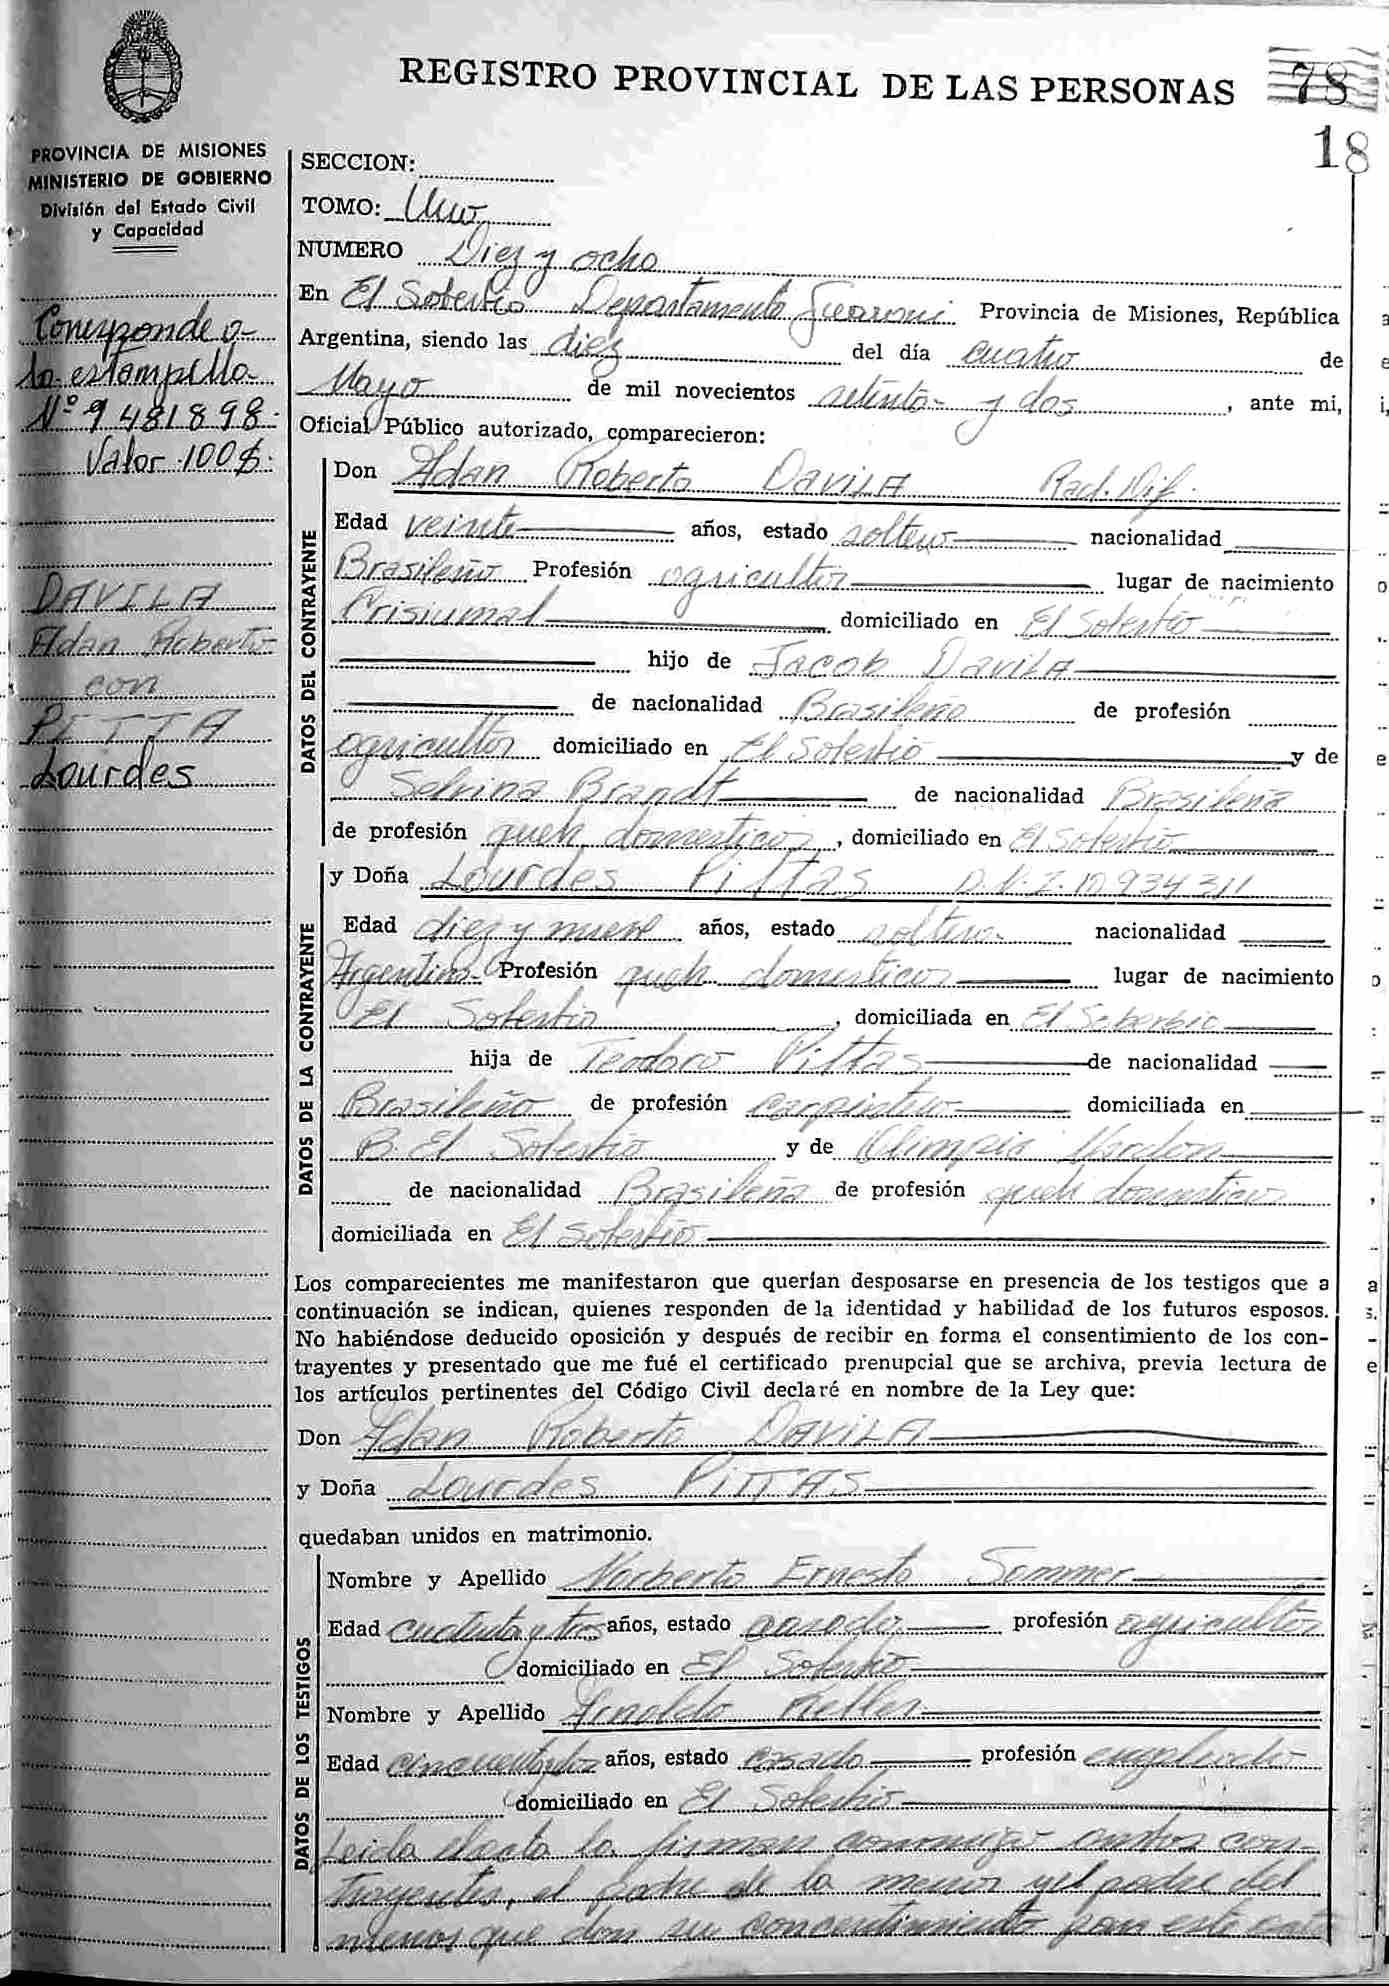 REGISTRO PROVINCIAL DE LAS PERSONAS 78
18
PROVINCIA DE MISIONES
MINISTERIO DE GOBIERNO
División del Estado Civil
y Capacidad
Corresponde a
la estampilla
Nº 9481898
Valor 100$
DAVILA
Adan Roberto
con
PITTA
Lourdes
SECCION:
TOMO: Uno
NUMERO Diez y ocho
En El Soberbio Departamento Guarani Provincia de Misiones, República
Argentina, siendo las diez del día cuatro de
Mayo de mil novecientos setenta y dos, ante mi,
Oficial Público autorizado, comparecieron:
DATOS DEL CONTRAYENTE
Don Adan Roberto DAVILA Rad. Dif.
Edad veinte años, estado soltero nacionalidad
Brasileño Profesión agricultor lugar de nacimiento
Crisiumal domiciliado en El Soberbio
hijo de Jacob DAVILA
de nacionalidad Brasileño de profesión
agricultor domiciliado en El Soberbio y de
Selvina Brandt de nacionalidad Brasileña
de profesión queh. domesticos, domiciliado en El Soberbio
DATOS DE LA CONTRAYENTE
y Doña Lourdes Pittas D.N.I. 10 934 311
Edad diez y nueve años, estado soltera nacionalidad
Argentina Profesión queh. domesticos lugar de nacimiento
El Soberbio, domiciliada en El Soberbio
hija de Teodoro Pittas de nacionalidad
Brasileño de profesión carpintero domiciliada en
B. El Soberbio y de Olimpia
de nacionalidad Brasileña de profesión queh domesticos
domiciliada en El Soberbio
Los comparecientes me manifestaron que querían desposarse en presencia de los testigos que a
continuación se indican, quienes responden de la identidad y habilidad de los futuros esposos.
No habiéndose deducido oposición y después de recibir en forma el consentimiento de los con-
trayentes y presentado que me fué el certificado prenupcial que se archiva, previa lectura de
los artículos pertinentes del Código Civil declaré en nombre de la Ley que:
Don Adan Roberto DAVILA
y Doña Lourdes PITTAS
quedaban unidos en matrimonio.
DATOS DE LOS TESTIGOS
Nombre y Apellido Norberto Ernesto Sommer
Edad cuarenta y tres años, estado casado profesión agricultor
domiciliado en El Soberbio
Nombre y Apellido Arnoldo Keller
Edad cincuenta y dos años, estado casado profesión empleado
domiciliado en El Soberbio
Leida el acta la firman conmigo ambos con-
trayentes, el padre de la menor y el padre del
menor que dan su concentimiento para este